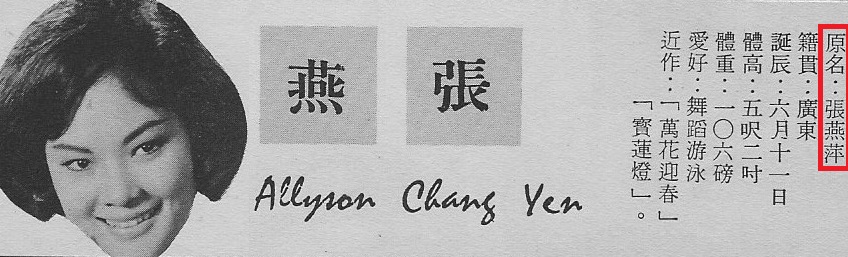 原名：張燕萍
籍貫：廣東
誕辰：六月十一日
體高：五呎二吋
體重：一〇六磅
愛好：舞蹈游泳
近作：「萬花迎春」
「寶蓮燈」。
張燕
Allyson Chang Yen